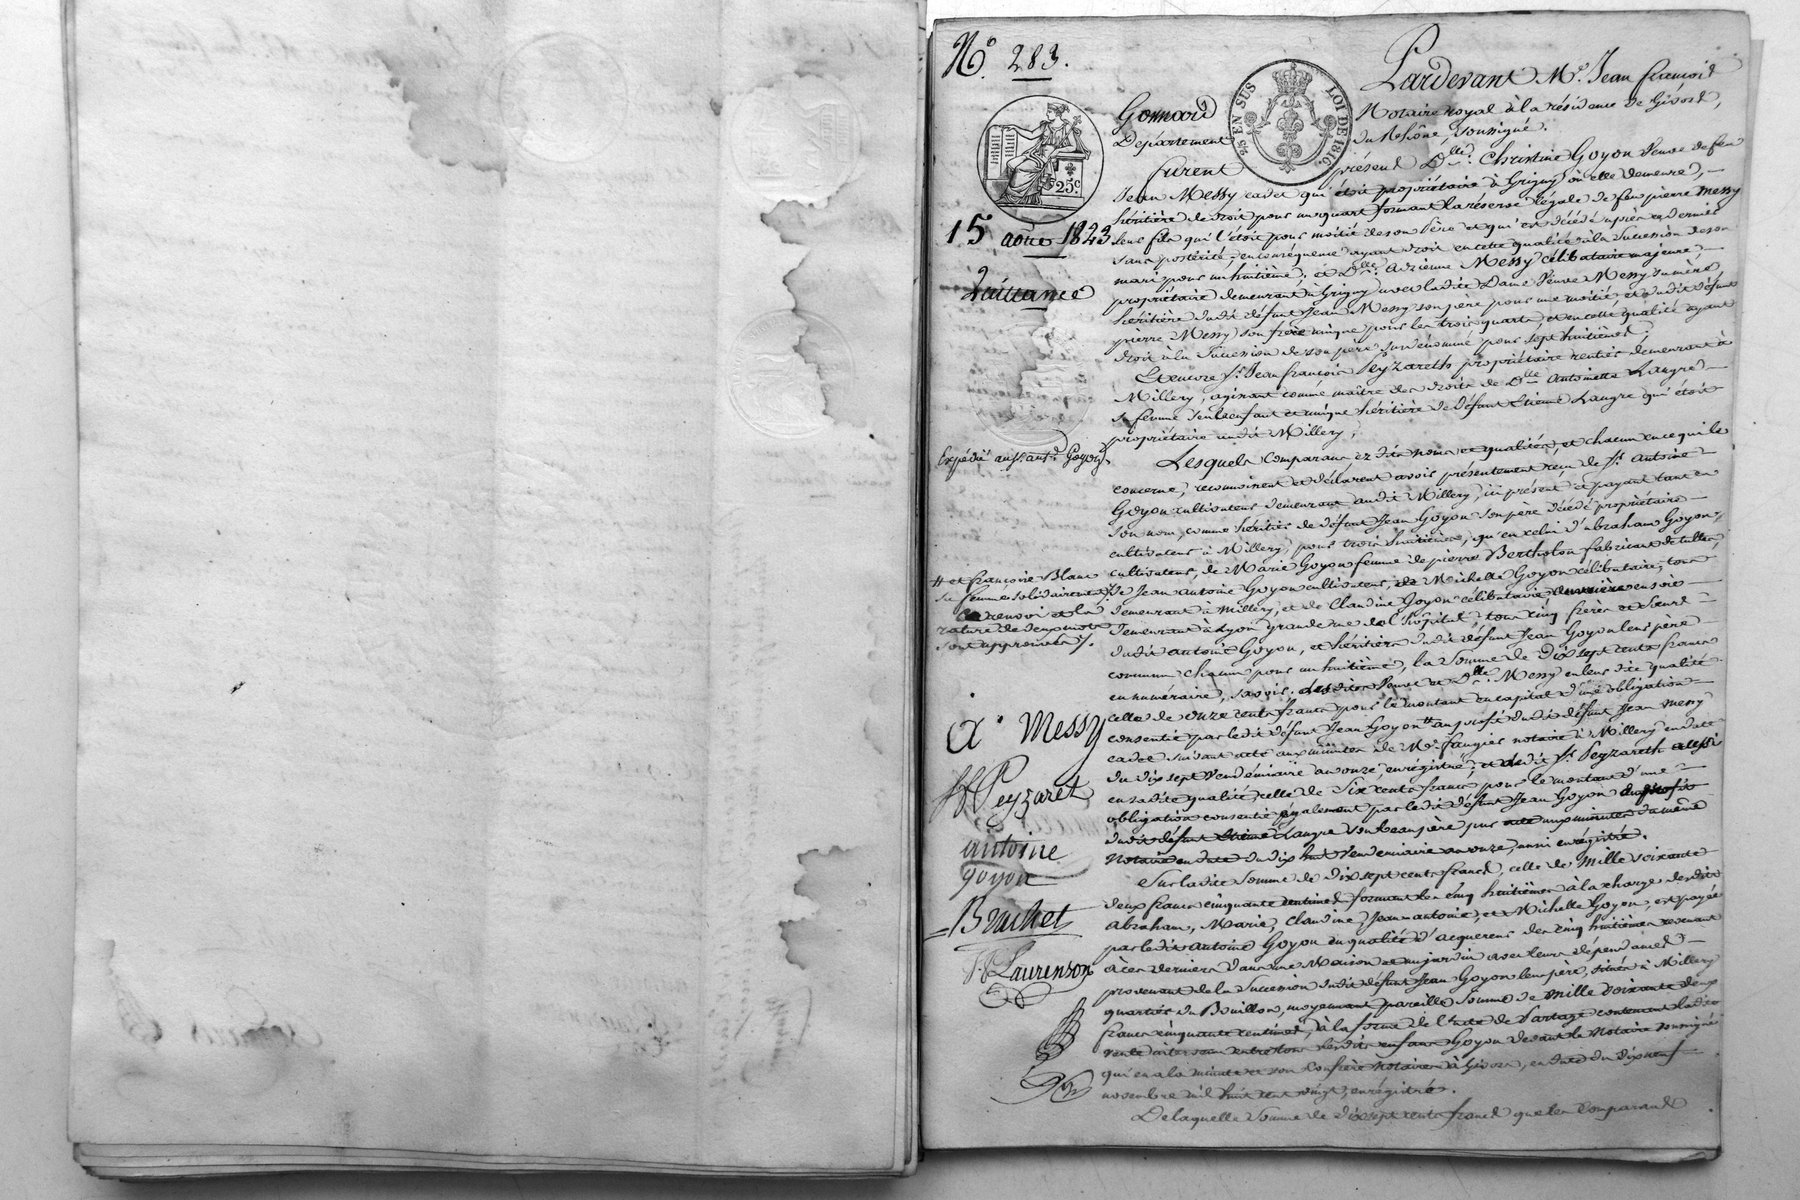 N.º 283.
25 EN SUS
LOI DE 1816.
25c
15 août 1823
Quittance
Expédié au sr. ant.e Goyon
# et françoise Blanc
sa femme solidairement
renvoi et la
rature de deux mots
sont approuvés
A. Messy
Peyzaret
antoine
goyon
Brachet
Laurenson
Pardevant Me. Jean françois
Gonnard Notaire royal à la résidence de Givors,
Département du Rhône, soussigné.
furent présent Dlle. Christine Goyon veuve de feu
Jean Messy cadet qui étoit propriétaire à Grigny où elle demeure,
héritière de droit pour un quart formant la réserve légale de feu pierre Messy
leur fils qui l'étoit pour moitié de son père et qui est décédé après ce dernier
sans postérité, en conséquence ayant droit en cette qualité à la succession de son
mari pour un huitième; et Dlle. Adrienne Messy célibataire majeure,
propriétaire demeurant à Grigny avec ladite Dame veuve Messy sa mère,
héritière dudit défunt Jean Messy son père pour une moitié, et dudit défunt
pierre Messy son frère unique pour les trois quarts, et en cette qualité ayant
droit à la succession de son père susdénommé pour sept huitièmes.
Et encore sr. Jean françois Peyzareth propriétaire rentier demeurant à
Millery, agissant comme maître des droits de Dlle Antoinette Laugre
sa femme seule enfant et unique héritière de défunt Etienne Laugre qui étoit
propriétaire audit Millery;
Lesquels comparans ez dits noms et qualités, et chacun en ce qui le
concerne, reconnoissent et déclarent avoir présentement reçu de sr. Antoine
Goyon cultivateur demeurant audit Millery, ici présent et payant tant en
son nom, comme héritier de défunt Jean Goyon son père décédé propriétaire
cultivateur à Millery, pour trois huitièmes, qu'en celui d'abraham Goyon,
cultivateur, de Marie Goyon femme de pierre Bertholon fabricant de tulles,
de Jean antoine Goyon cultivateur, de Michelle Goyon célibataire, tous
demeurant à Millery, et de Claudine Goyon célibataire, ouvrière en soie
demeurant à Lyon grande rue de l'hôpital, tous cinq frères et sœurs
dudit antoine Goyon, et héritiers dudit défunt Jean Goyon leur père
commun chacun pour un huitième, la somme de Dix sept cents francs
en numéraire, savoir: lesdites veuve et Dlle. Messy en leur dite qualité
celle de onze cents francs pour le montant en capital d'une obligation
consentie par ledit défunt Jean Goyon # au profit dudit défunt Jean Messy
cadet suivant acte aux minutes de Me. faugier notaire à Millery en date
du dix sept vendémiaire an onze, enregistré; et ledit sr. Peyzareth aussi
en sadite qualité, celle de six cents francs pour le montant d'une
obligation consentie également par ledit défunt Jean Goyon au profit
dudit défunt Etienne Laugre son beau père par acte aux minutes du même
Notaire en date du dix huit vendémiaire an onze, aussi enregistré.
Sur ladite somme de Dix sept cents francs, celle de Mille soixante
deux francs cinquante centimes formant les cinq huitièmes à la charge desdits
abraham, Marie, Claudine, Jean antoine, et Michelle Goyon, est payée
par ledit antoine Goyon en qualité d'acquéreur des cinq huitièmes revenant
à ces derniers dans une Maison et un jardin avec leurs dépendances
provenant de la succession dudit défunt Jean Goyon leur père, situés à Millery
quartier du Bouillon, moyennant pareille somme de Mille soixante deux
francs cinquante centimes, à la forme de l'acte de Partage contenant ladite
vente à titre sans entre tous lesdits enfans Goyon devant le Notaire soussigné
qui en a la minute et son Confrère Notaires à Givors, en date du dix neuf
novembre mil huit cent vingt, enregistré.
De laquelle somme de dix sept cents francs que les Comparans